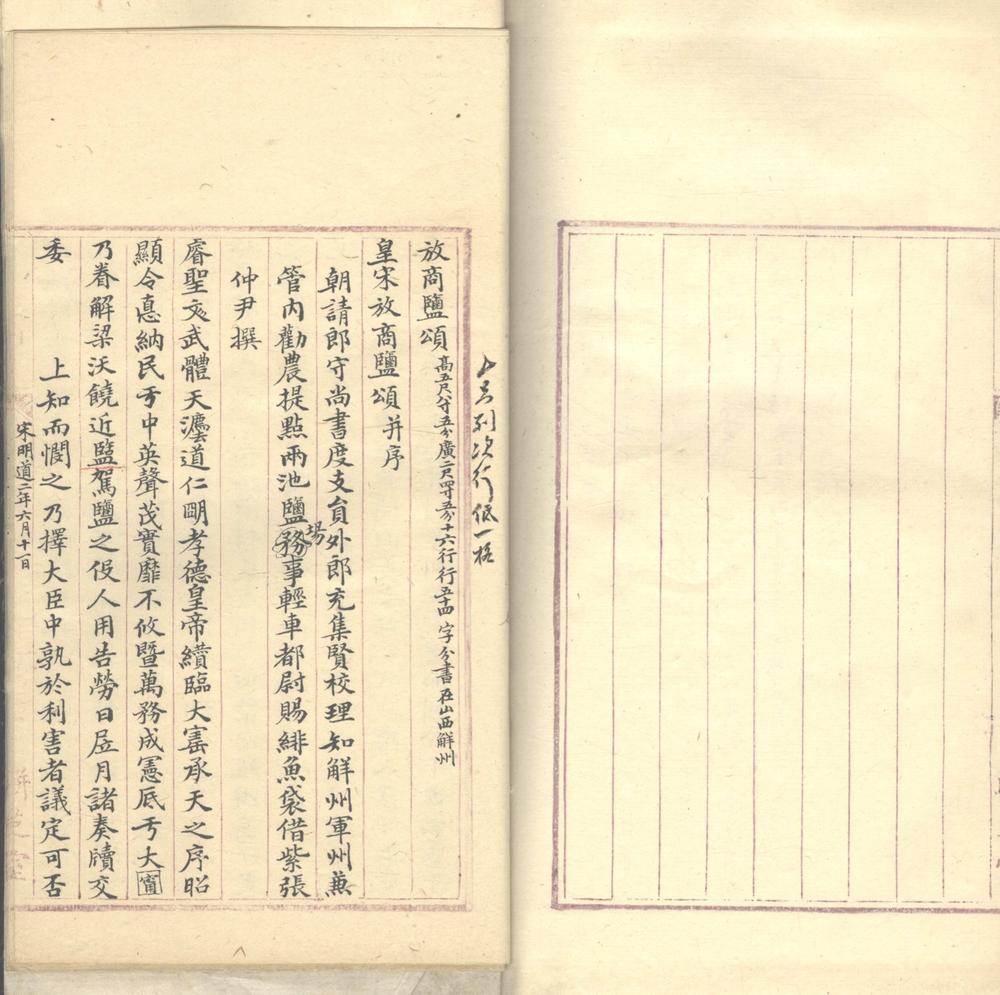 以書列次行低一格
放商鹽頌高五尺八寸五分廣二尺四寸五分十六行行五十四字分書在山西解州
皇宋放商鹽頌并序
朝請郎守尚書度支員外郎充集賢校理知解州軍州兼
管內勸農提點兩池鹽務場事輕車都尉賜緋魚袋借紫張
仲尹撰
睿聖文武體天灋道仁明孝德皇帝纘臨大寶承天之序昭
顯令惪納民于中英聲茂實靡不攸暨萬務成憲厎于大甯
乃眷解梁沃饒近盬駕鹽之伇人用告勞日屆月諸奏牘交
委　上知而憫之乃擇大臣中孰於利害者議定可否
宋明道二年六月十日